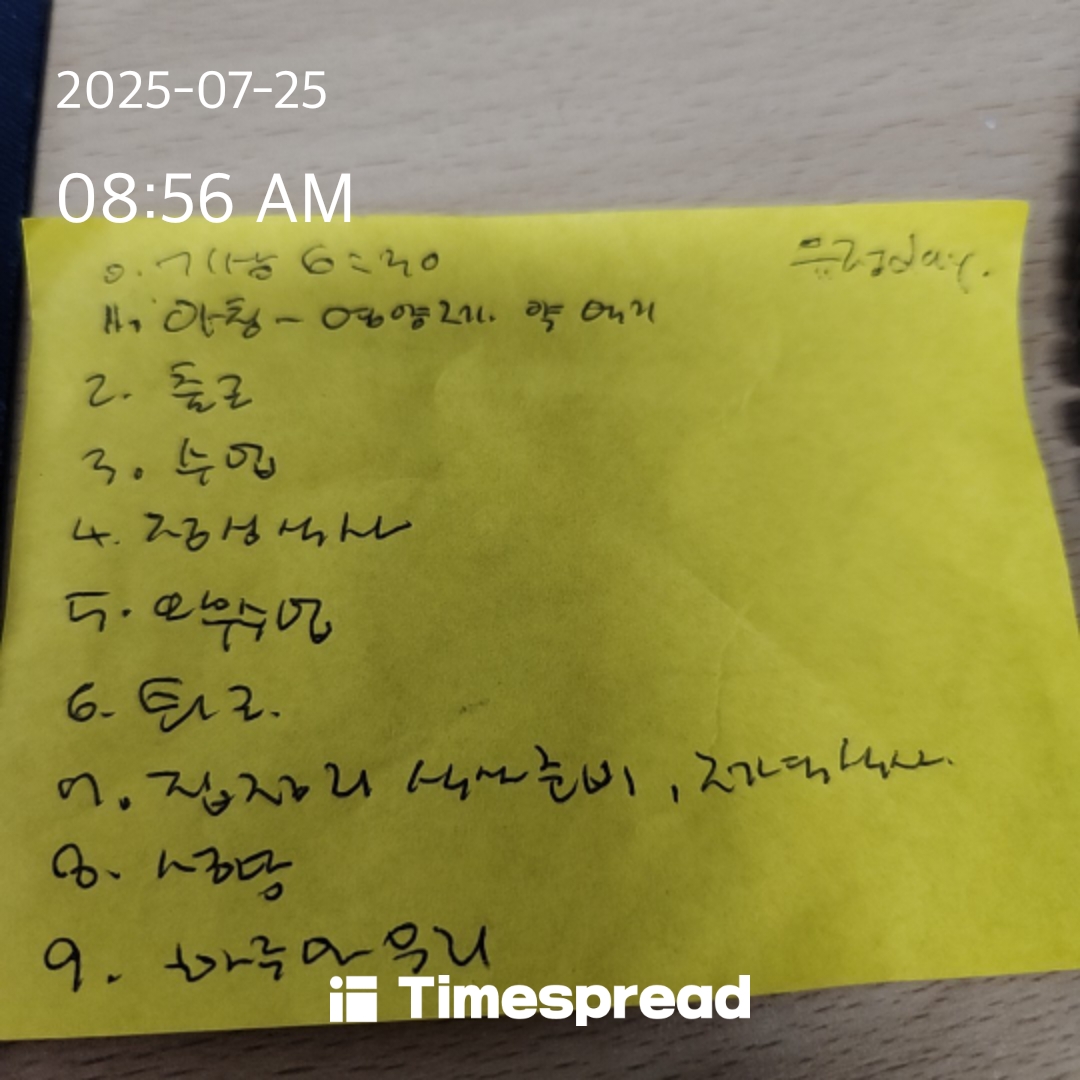 2025-07-25
08:56 AM
0. 기상 6:30
day.
1. 아침 - 영양제. 약 먹기
2. 출근
3. 수업
4. 점심식사
5. 오후수업
6. 퇴근.
7. 집정리 식사준비, 저녁식사.
8.
9. 하루마무리
Timespread